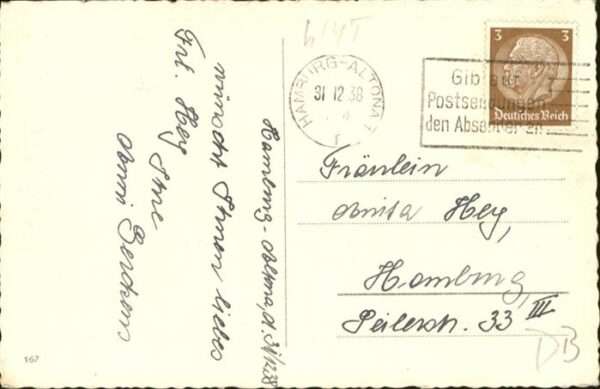 Hamburg-Altona, d. 31/12.38
wünscht Ihnen liebes
Frl. Hey Ihre
Anni
167
HAMBURG-ALTONA 1
31.12.38
r
Gib auf
Postsendungen
den Absender an
3 3
Deutsches Reich
Fräulein
Anita Hey,
Hamburg, III
Peilerstr. 33
DB